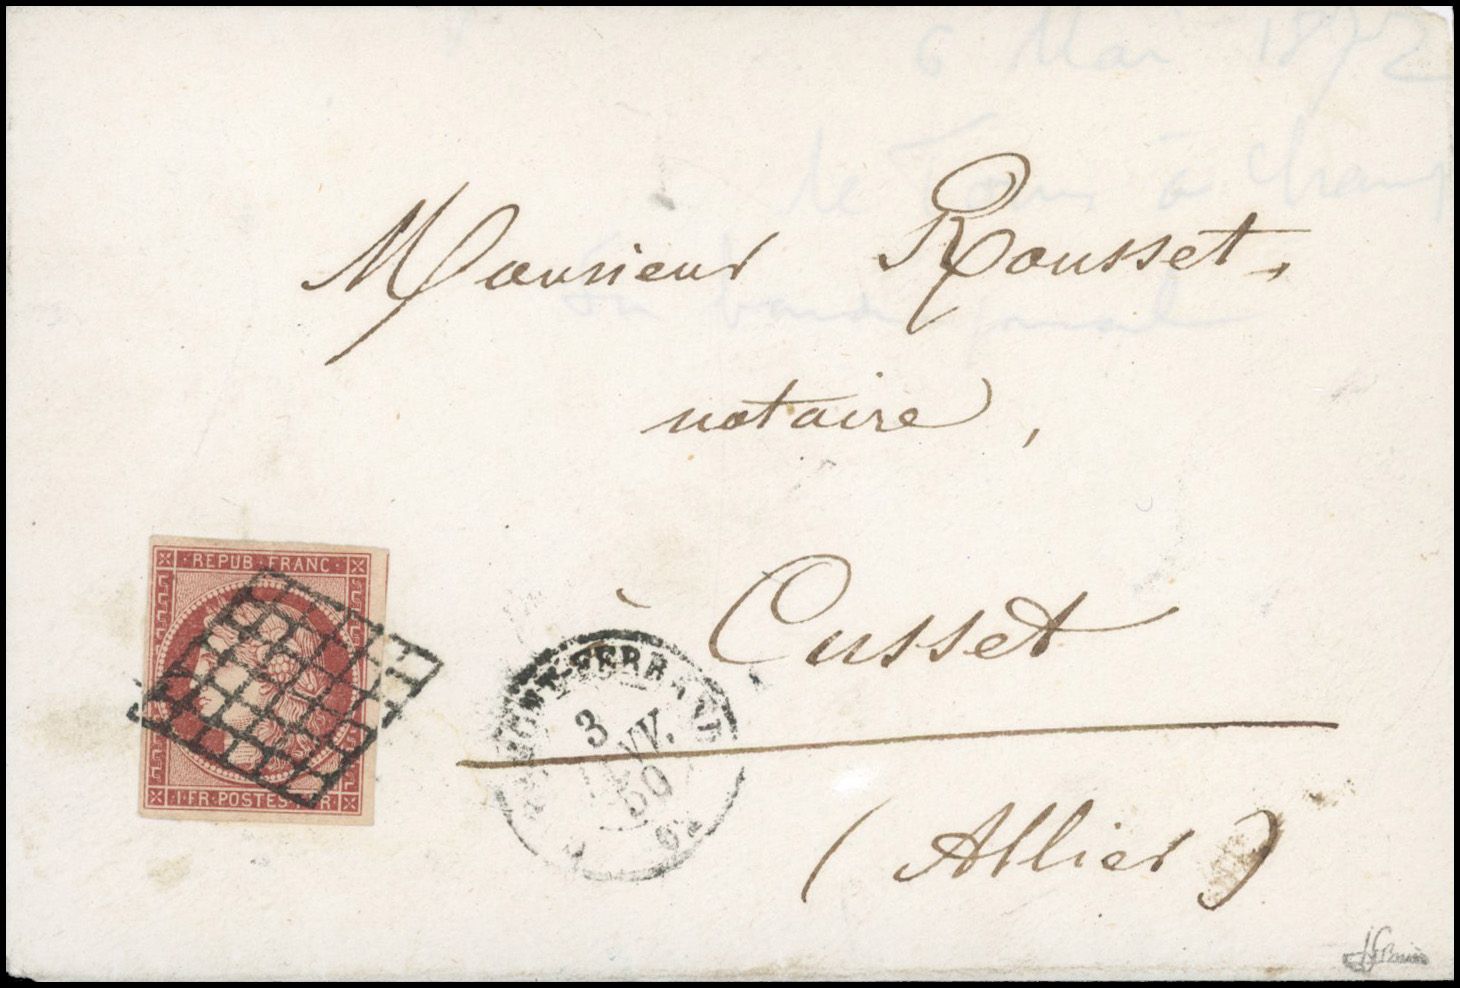 6 Mai 1872
le à
Monsieur Rousset,
notaire,
à Cusset
(Allier)
REPUB. FRANC.
1. FR. POSTES 1. FR.
CLERMONT-FERRAND
3
JANV.
50